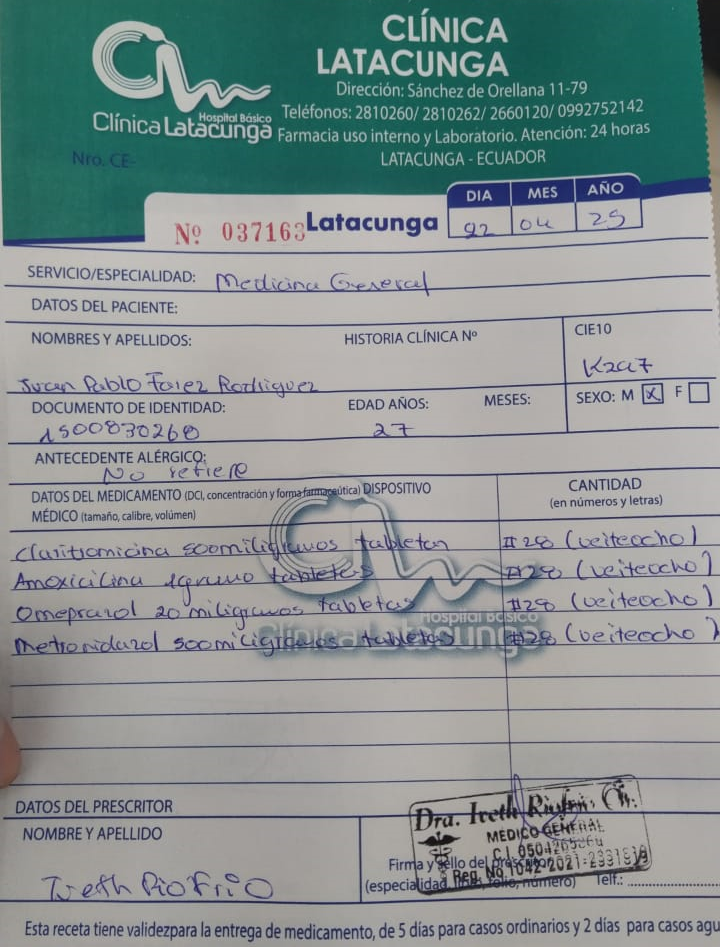 CLÍNICA
LATACUNGA
Dirección: Sánchez de Orellana 11-79
Teléfonos: 2810260/ 2810262/ 2660120/ 0992752142
Farmacia uso interno y Laboratorio. Atención: 24 horas
LATACUNGA - ECUADOR
Hospital Básico
Clínica Latacunga
Nro. CE-
DIA MES AÑO
Nº 037163 Latacunga 04 25
SERVICIO/ESPECIALIDAD: Medicina General
DATOS DEL PACIENTE:
NOMBRES Y APELLIDOS: HISTORIA CLÍNICA Nº CIE10
Juan Pablo Rodriguez
DOCUMENTO DE IDENTIDAD: EDAD AÑOS: MESES: SEXO: M X F
1500830260 27
ANTECEDENTE ALÉRGICO:
No refiere
DATOS DEL MEDICAMENTO (DCI, concentración y forma farmaceútica) DISPOSITIVO CANTIDAD
MÉDICO (tamaño, calibre, volúmen) (en números y letras)
Claritromicina 500 miligramos tabletas #28 (veiteocho)
Amoxicilina 1gramo tabletas #28 (veiteocho)
Omeprazol 20 miligramos tabletas #28 (veiteocho)
Metronidazol 500 miligramos tabletas #28 (veiteocho)
Hospital Básico
Clínica Latacunga
DATOS DEL PRESCRITOR
NOMBRE Y APELLIDO
Iveth Riofrio
Dra. Iveth Riofrio
MEDICO GENERAL
Reg. No 1042-2021-2331819
Firma y sello del prescriptor
(especialidad, folio, número) Telf.:
Esta receta tiene validezpara la entrega de medicamento, de 5 días para casos ordinarios y 2 días para casos agu